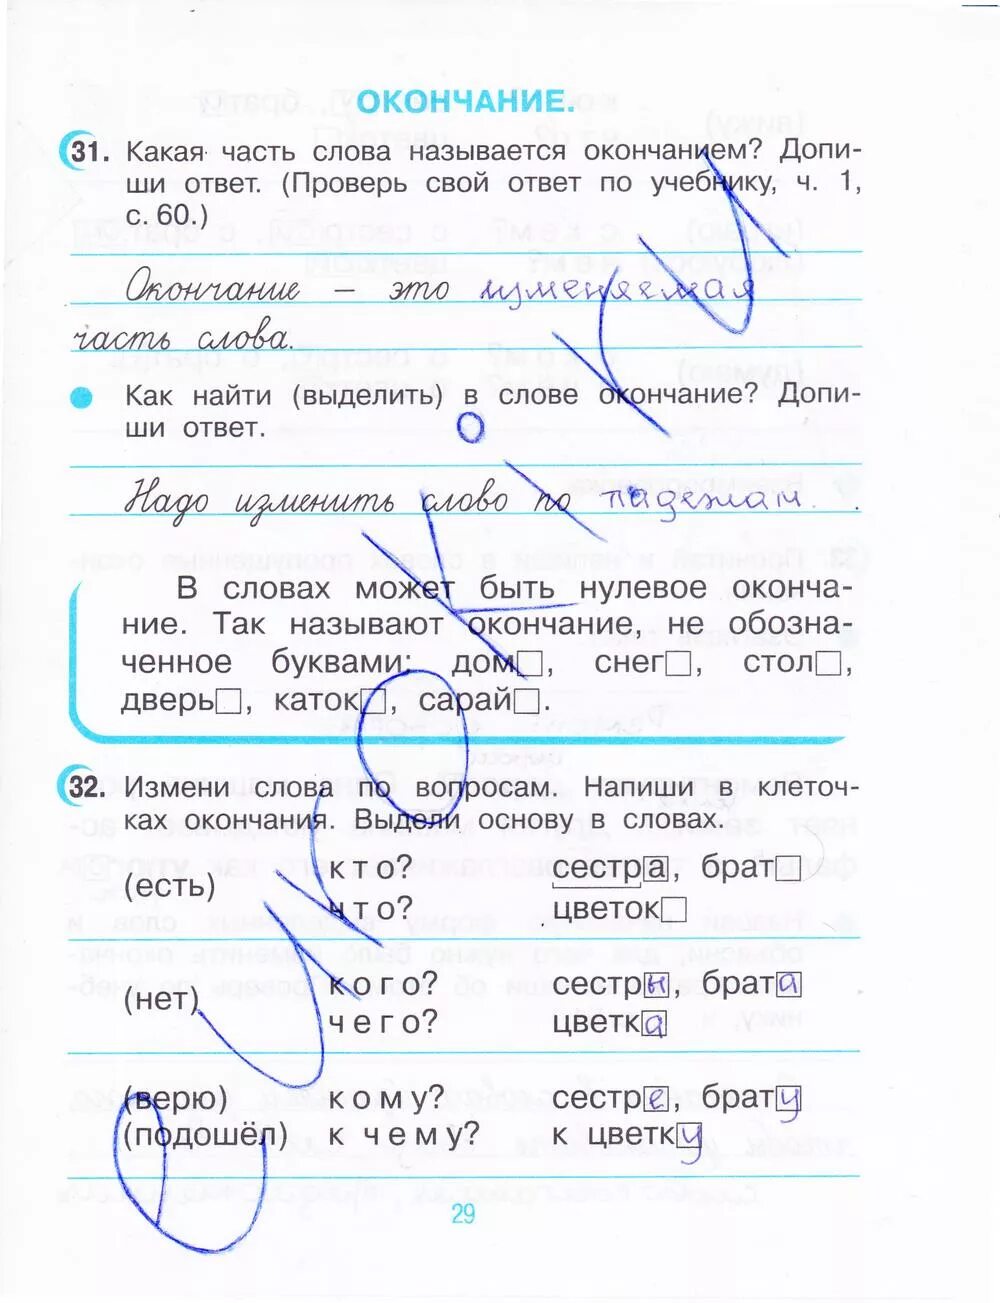 ОКОНЧАНИЕ.
31. Какая часть слова называется окончанием? Допи-
ши ответ. (Проверь свой ответ по учебнику, ч. 1,
с. 60.)
Окончание – это изменяемая
часть слова.
Как найти (выделить) в слове окончание? Допи-
ши ответ.
Надо изменить слово по падежам.
В словах может быть нулевое оконча-
ние. Так называют окончание, не обозна-
ченное буквами: дом, снег, стол,
дверь, каток, сарай.
32. Измени слова по вопросам. Напиши в клеточ-
ках окончания. Выдели основу в словах.
(есть) кто? сестра, брат
что? цветок
(нет) кого? сестры, брата
чего? цветка
(верю) кому? сестре, брату
(подошёл) к чему? к цветку
29